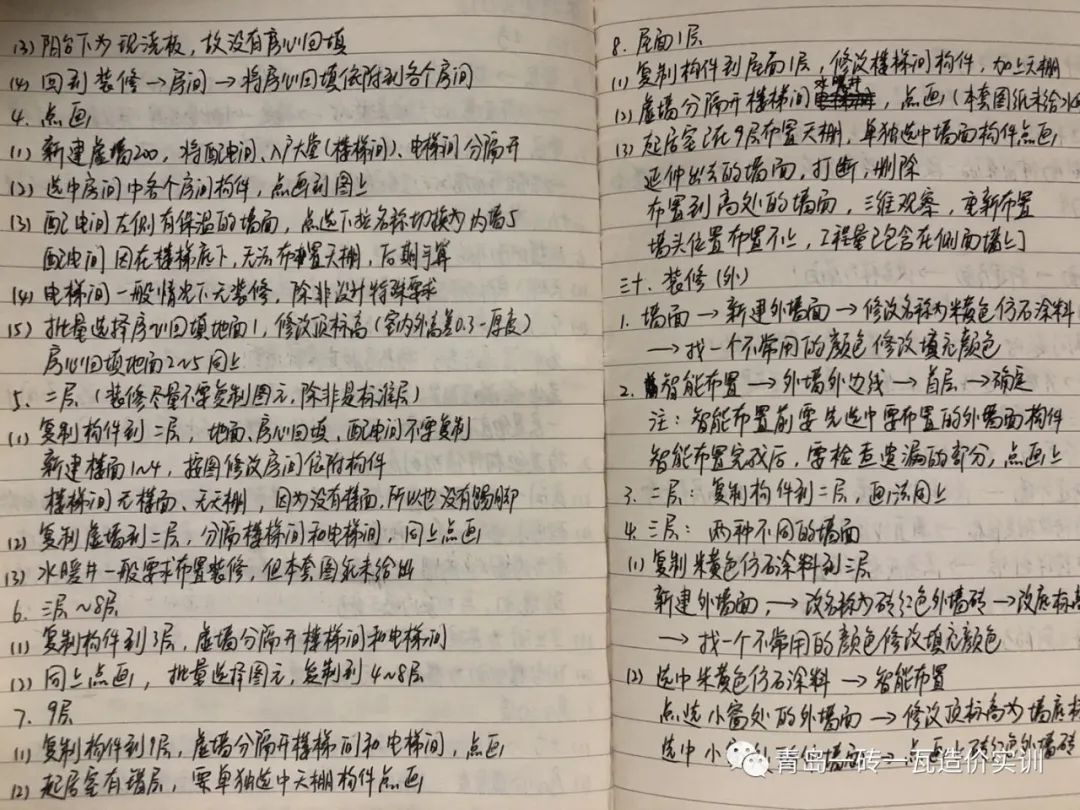 (3) 阳台下为现浇板，故没有房心回填
(4) 回到装修→房间→将房心回填依附到各个房间
4. 点画
(1) 新建虚墙200，将配电间、入户大堂(楼梯间)、电梯间分隔开
(2) 选中房间中各个房间构件，点画到图上
(3) 配电间左侧有保温的墙面，点选下拉名称切换为内墙5
配电间因在楼梯底下，无法布置天棚，后期手算
(4) 电梯间一般情况下无装修，除非设计特殊要求
(5) 批量选择房心回填地面1，修改顶标高(室内外高差0.3-厚度)
房心回填地面2~5同上
5. 二层（装修尽量不要复制图元，除非是标准层）
(1) 复制构件到二层，地面、房心回填，配电间不要复制
新建楼面1~4，按图修改房间依附构件
楼梯间无楼面、无天棚，因为没有楼面，所以也没有踢脚
(2) 复制虚墙到二层，分隔楼梯间和电梯间，同上点画
(3) 水暖井一般要求布置装修，但本套图纸未给出
6. 三层~8层
(1) 复制构件到3层，虚墙分隔开楼梯间和电梯间
(2) 同上点画，批量选择图元，复制到4~8层
7. 9层
(1) 复制构件到9层，虚墙分隔开楼梯间和电梯间，点画
(2) 起居室有错层，需单独选中天棚构件点画
8. 屋面1层
(1) 复制构件到屋面1层，修改楼梯间构件，加上天棚
(2) 虚墙分隔开楼梯间水暖井，点画(本套图纸未给水
(3) 起居室已在9层布置天棚，单独选中墙面构件点画
延伸出去的墙面，打断，删除
布置到高处的墙面，三维观察，重新布置
墙头位置布置不上，工程量已包含在侧面墙上
三十、装修（外）
1. 墙面→新建外墙面→修改名称为米黄色仿石涂料
→找一个不常用的颜色修改填充颜色
2. 智能布置→外墙外边线→首层→确定
注：智能布置前要先选中要布置的外墙面构件
智能布置完成后，要检查遗漏的部分，点画上
3. 二层：复制构件到二层，画法同上
4. 三层：两种不同的墙面
(1) 复制米黄色仿石涂料到三层
新建外墙面，→改名称为砖红色外墙砖→改底标高
→找一个不常用的颜色修改填充颜色
(2) 选中米黄色仿石涂料→智能布置
点选小窗处的外墙面→修改顶标高为墙底标
选中小窗 外墙面→点画上砖红色外墙砖
青岛一砖一瓦造价实训